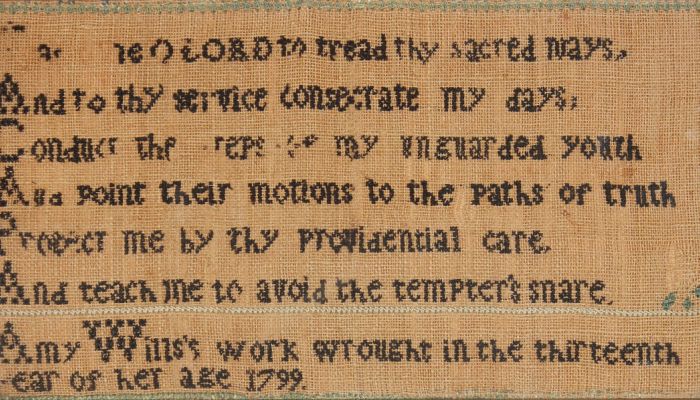 O LORD to tread thy sacred ways,
And to thy service consecrate my days;
Conduct the steps of my unguarded youth
And point their motions to the paths of truth
Protect me by thy providential care,
And teach me to avoid the tempter's snare.
Amy Wills's work wrought in the thirteenth
Year of her age 1799.